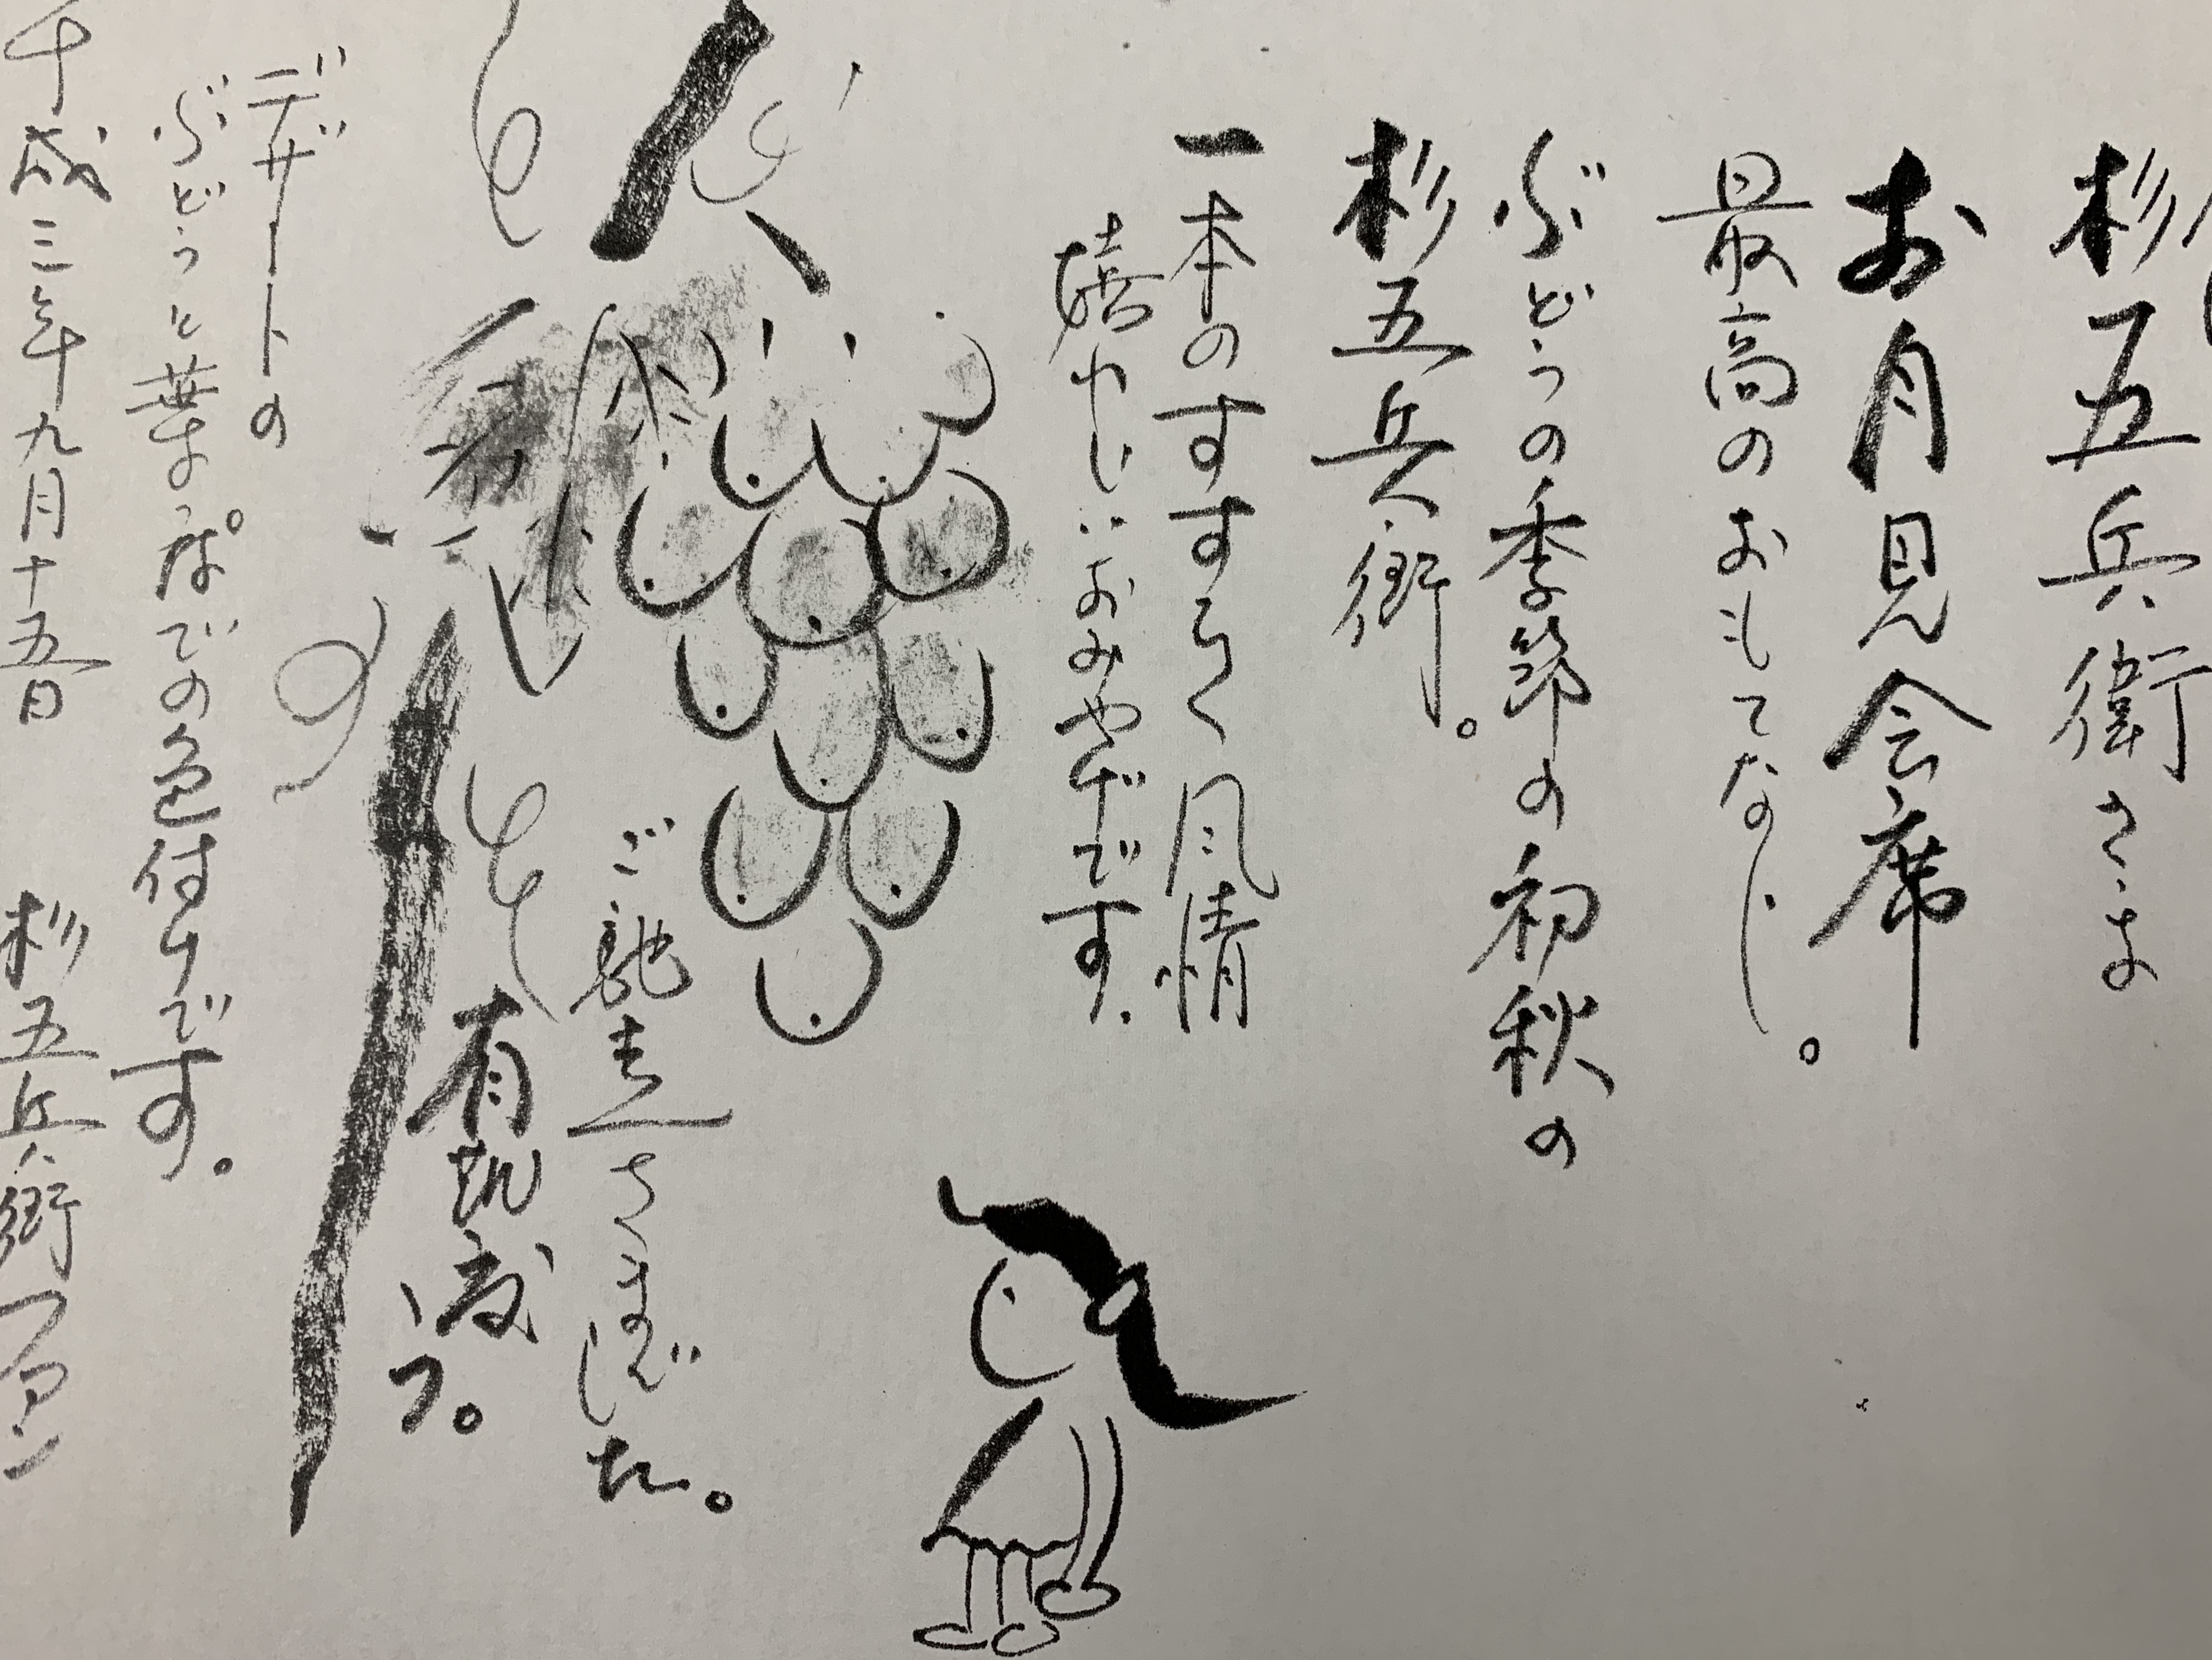 杉五兵衛さま
お月見会席
最高のおもてなし。
ぶどうの季節の初秋の
杉五兵衛。
一本のすすく風情
嬉しいおみやげです。
ご馳走さまでした。
デザートの
ぶどうと葉っぱでの色付けです。
平成三年九月十五日 杉五兵衛ファン